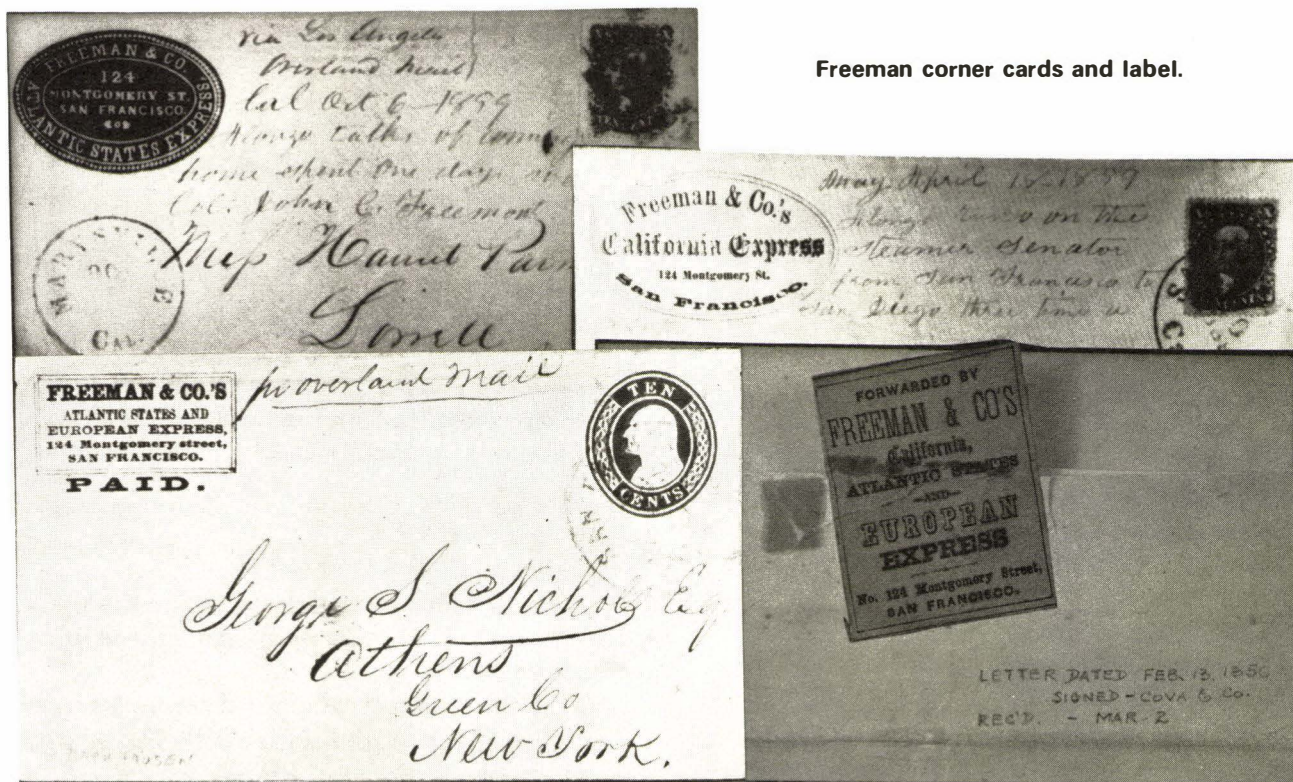 Freeman corner cards and label.
FREEMAN & CO.
124
MONTGOMERY ST.
SAN FRANCISCO.
ATLANTIC STATES EXPRESS
via Los Angeles
Overland Mail
Oct 6 1859
talks of
home spent one day
Col. John C. Freemont
Miss
Lowell
MARYSVILLE
CAL.
Freeman & Co.'s
California Express
124 Montgomery St.
San Francisco.
April 18 1859
on the
Steamer Senator
from San Francisco to
San Diego three time a
FREEMAN & CO.'S
ATLANTIC STATES AND
EUROPEAN EXPRESS,
124 Montgomery street,
SAN FRANCISCO.
PAID.
pr overland mail
TEN
CENTS
George S Nichols Esq
Athens
Green Co
New York.
FORWARDED BY
FREEMAN & CO'S
California,
ATLANTIC STATES
—AND—
EUROPEAN
EXPRESS
No. 124 Montgomery Street,
SAN FRANCISCO.
LETTER DATED FEB. 13, 1856
SIGNED - COVA & CO.
REC'D. - MAR. 2